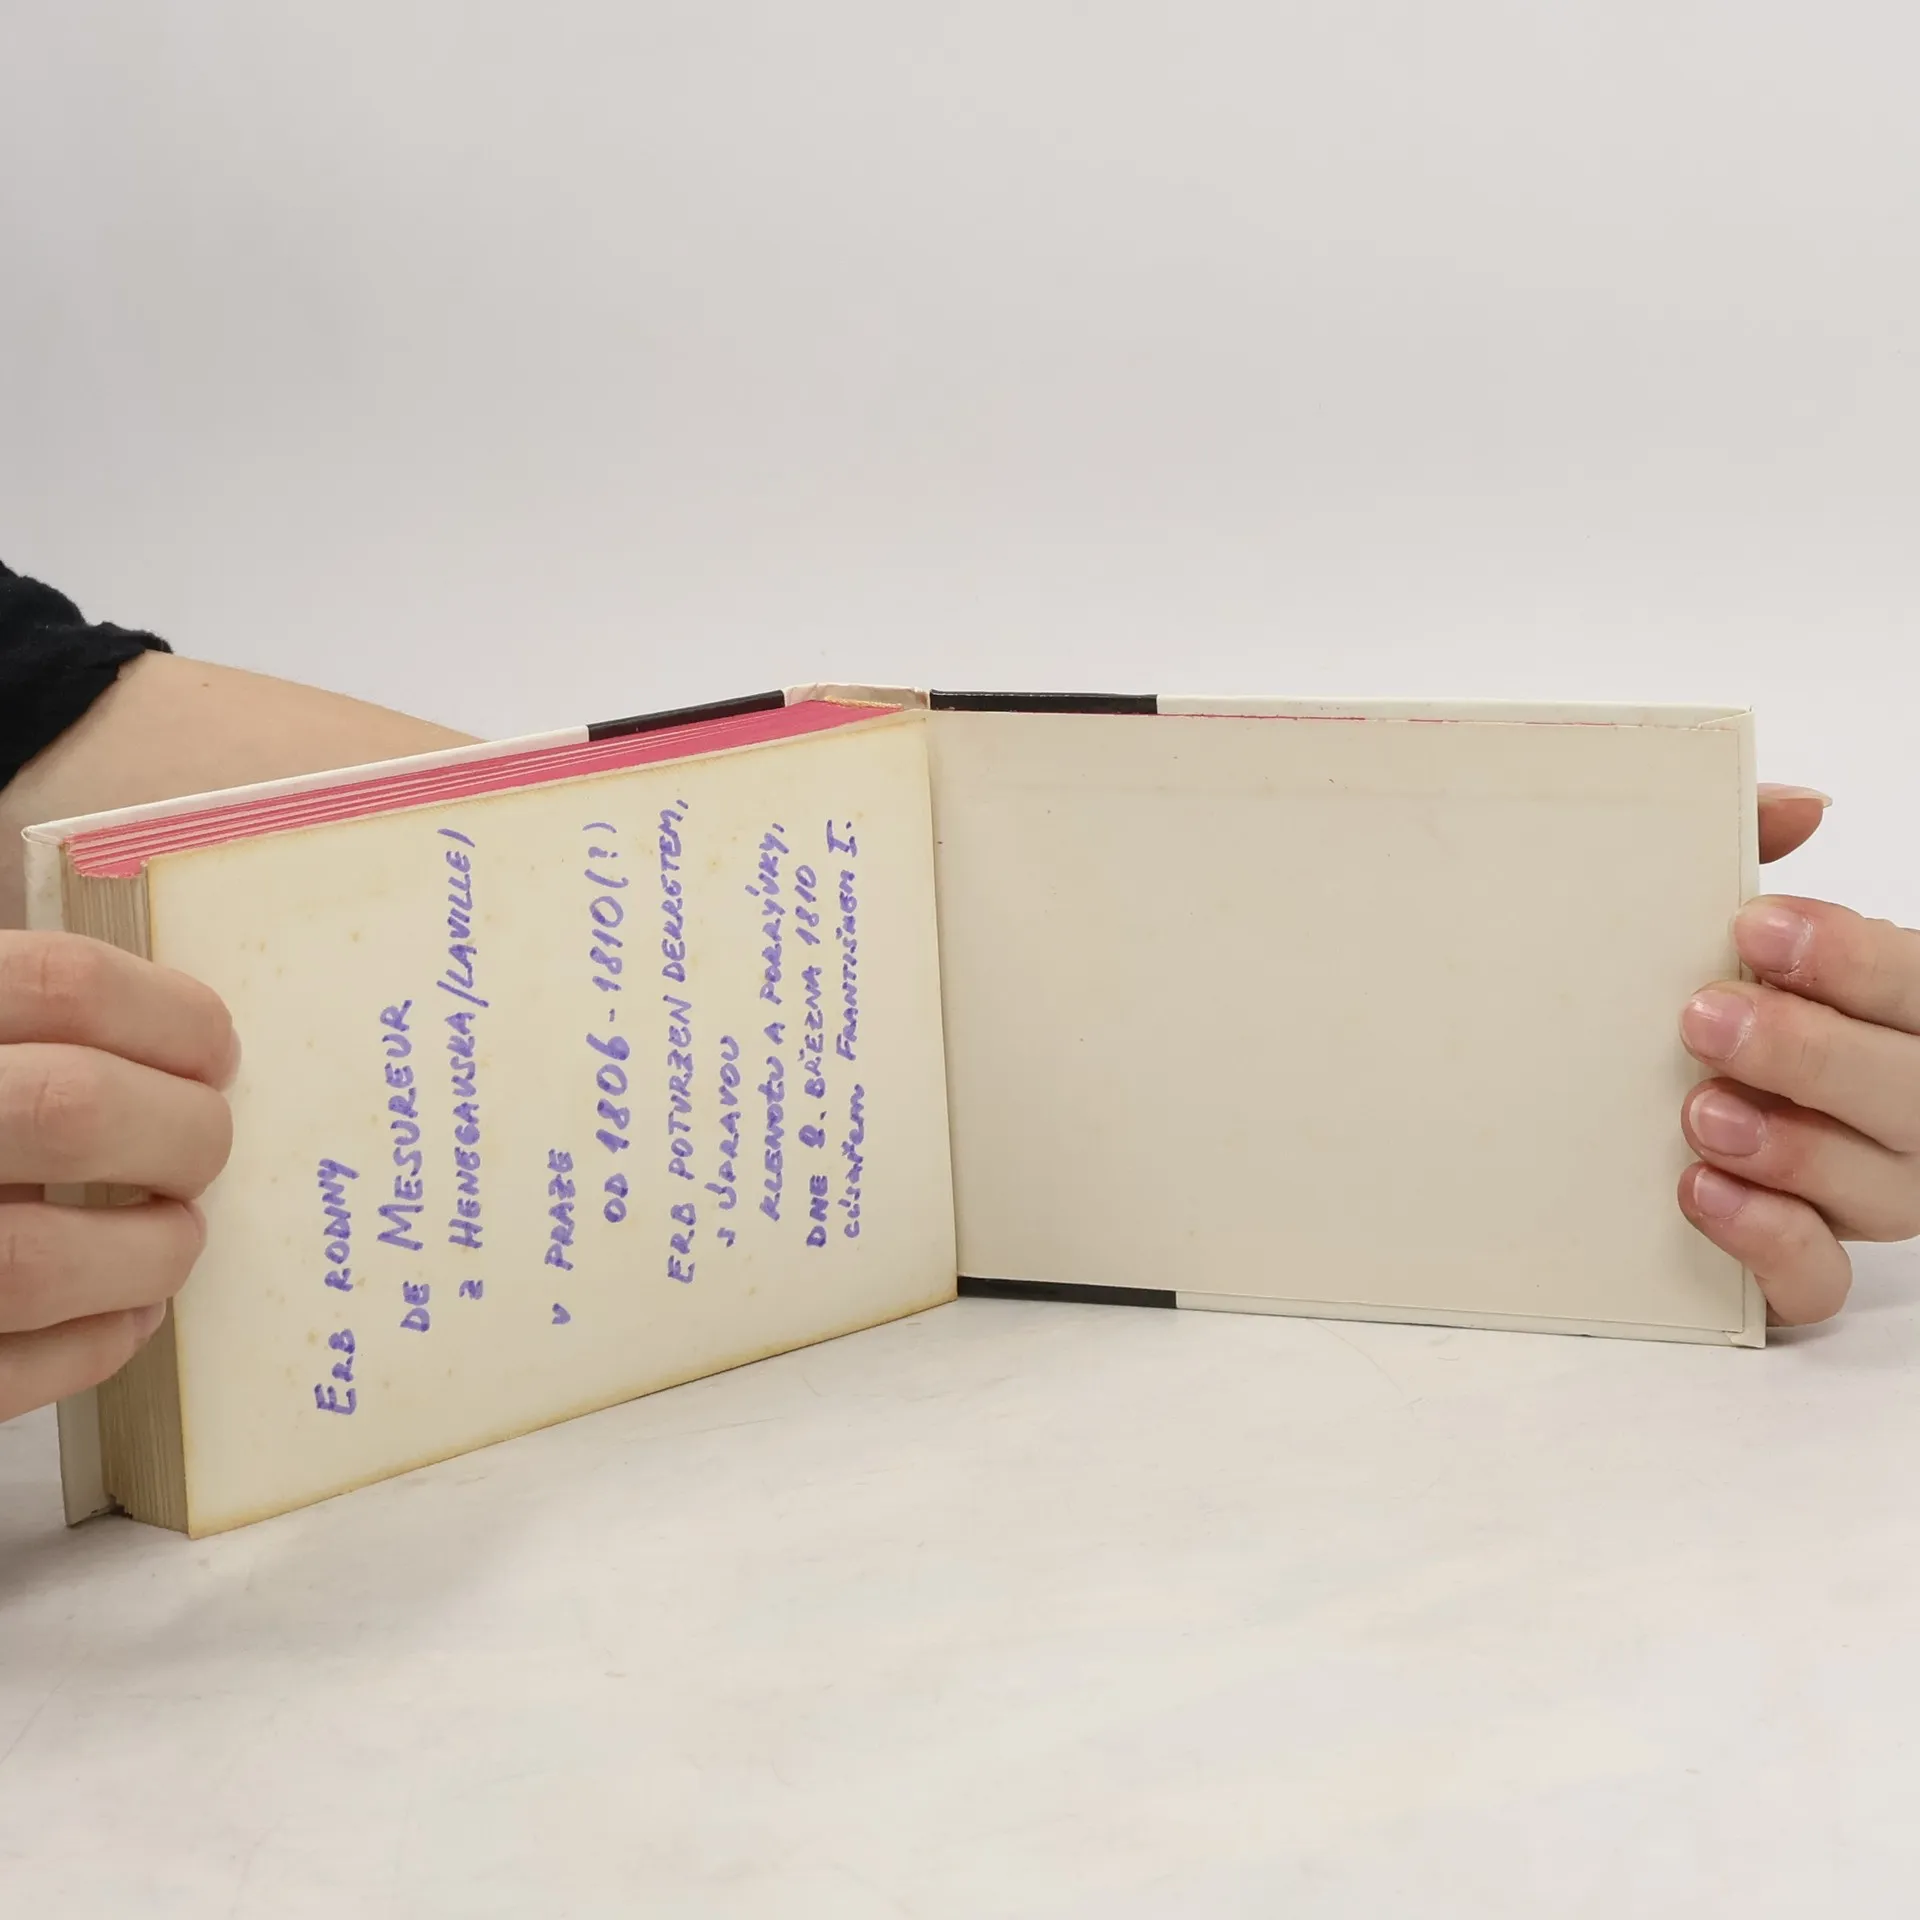 ERB RODINY
DE MESUREUR
Z HENEGAVSKA /LAVILLE/
V PRAZE
OD 1806 - 1810 (?)
ERB POTVRZEN DEKRETEM,
S ÚPRAVOU
KLENOTU A POKRÝVKY,
DNE 8. BŘEZNA 1810
CÍSAŘEM FRANTIŠKEM I.